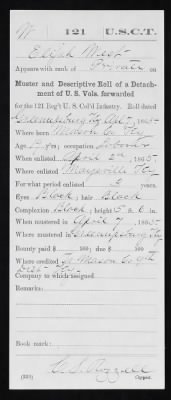 W | 121 | U.S.C.T.
Elijah West
Appears with rank of Private on
Muster and Descriptive Roll of a Detach-
ment of U. S. Vols. forwarded
for the 121 Reg't U. S. Col'd Infantry. Roll dated
Greenupsburg Ky Apl 7, 1865
Where born Mason Co Ky
Age y'rs; occupation Laborer
When enlisted April 2d, 1865
Where enlisted Maysville Ky
For what period enlisted 3 years.
Eyes Black; hair Black
Complexion Black; height 5 ft. 6 in.
When mustered in April 7, 1865
Where mustered in Greenupsburg Ky
Bounty paid $ 100; due $ 100
Where credited Mason Co 9th
Dist Ky
Company to which assigned
Remarks:
Book mark:
(339) Copyist.